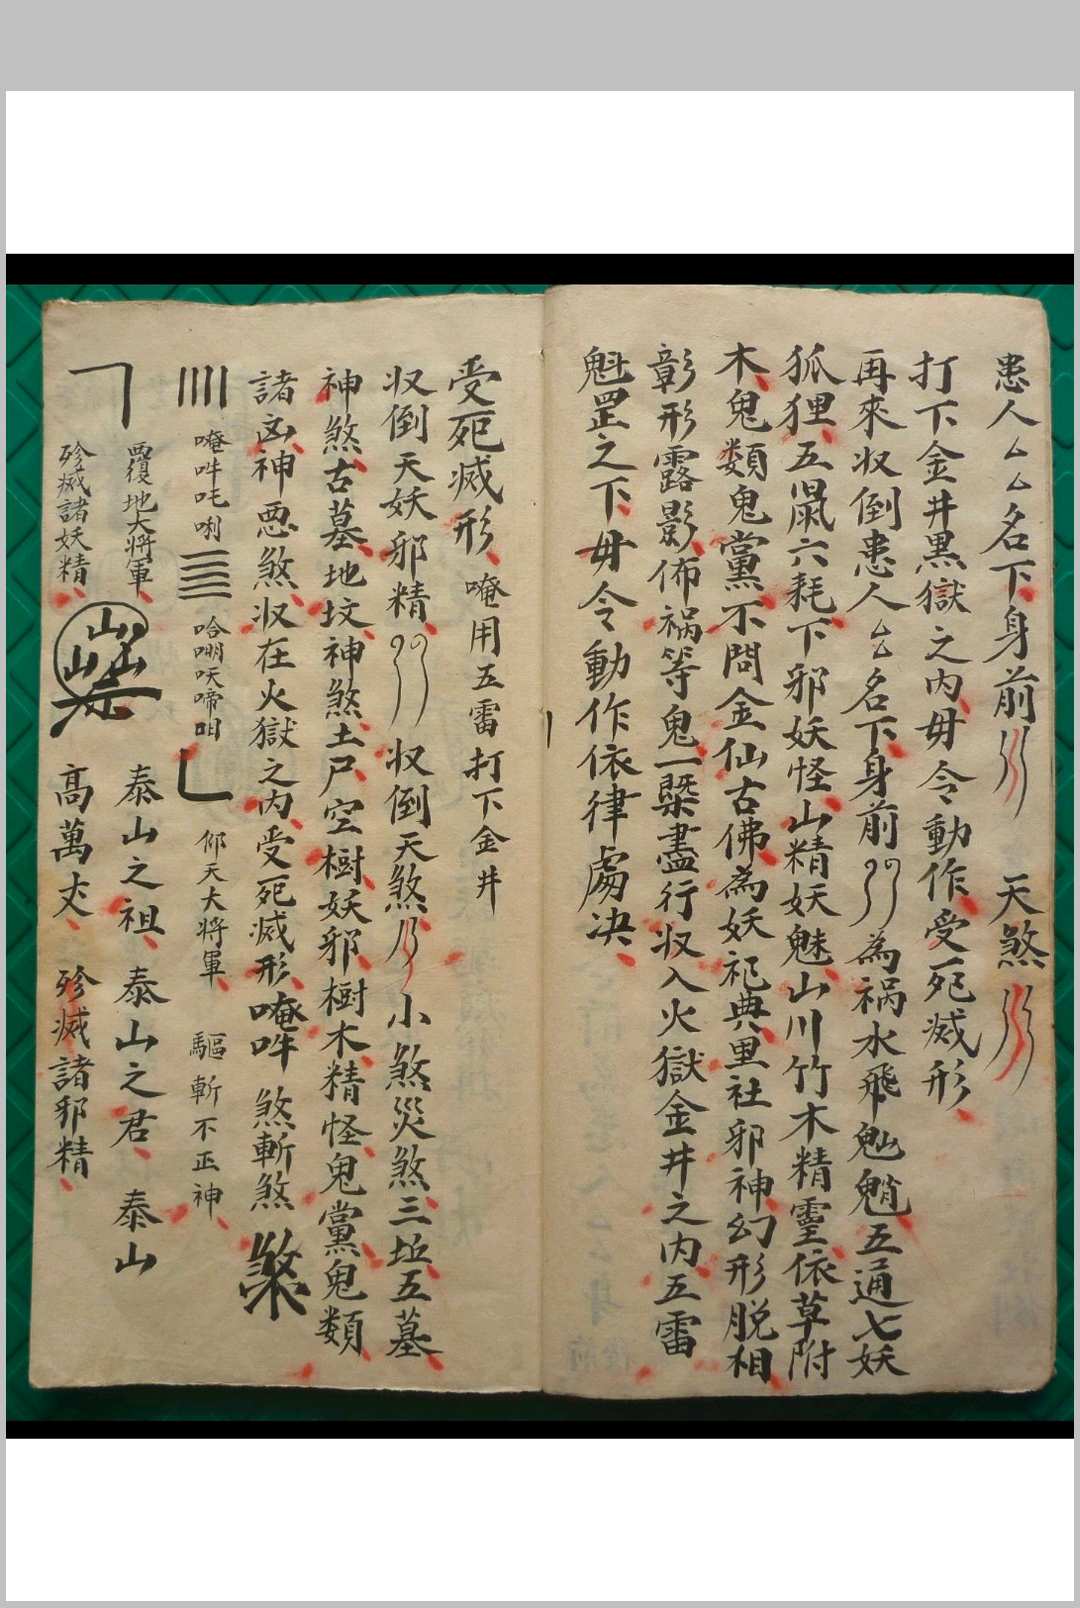 患人厶厶名下身前 天煞
打下金井黑獄之内毋令動作受死滅形
再來収倒患人厶厶名下身前 為禍水飛魈五通七妖
狐狸五鼠六耗下邪妖怪山精妖魅山川竹木精靈依草附
木鬼類鬼黨不問金仙古佛為妖祀典里社邪神幻形脱相
彰形露影佈禍等鬼一槩盡行収入火獄金井之内五雷
魁罡之下毋令動作依律處决
受死滅形 唵用五雷打下金井
収倒天妖邪精 収倒天煞 小煞災煞三坵五墓
神煞古墓地坟神煞土尸空樹妖邪樹木精怪鬼黨鬼類
諸凶神惡煞収在火獄之内受死滅形唵吽 煞斬煞
唵吽吒唎 哈嘚㕭啼呾 仰天大將軍 驅斬不正神
覆地大將軍 泰山之祖 泰山之君 泰山
殄滅諸妖精 高萬丈 殄滅諸邪精